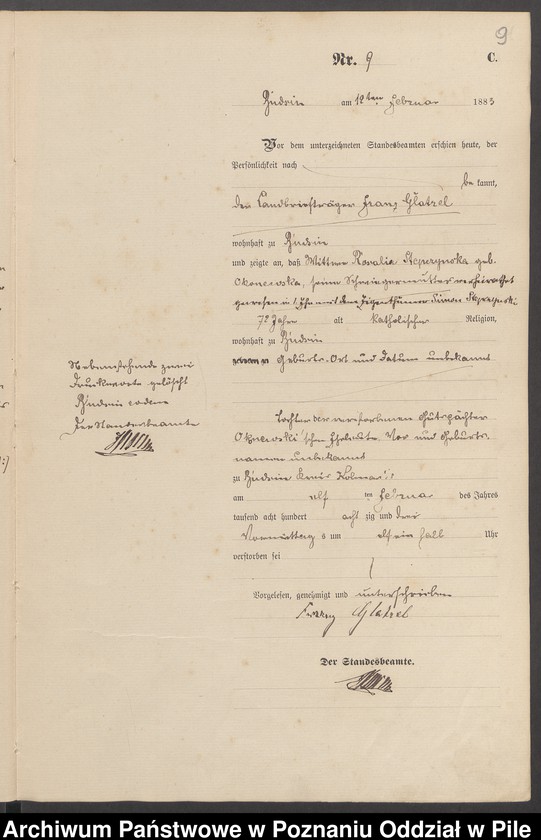 9
Nr. 9
C.
Budsin am 12ten Februar 1883
Vor dem unterzeichneten Standesbeamten erschien heute, der
Persönlichkeit nach
bekannt,
der Landbriefträger Franz Glatzel
wohnhaft zu Budsin
und zeigte an, daß Wittwe Rosalia geb.
Okoniewska, seine Schwiegermutter verheirathet
gewesen in I Ehe mit dem Eigenthümer Simon
72 Jahre alt katholischer Religion,
wohnhaft zu Budsin
Geburts-Ort und Datum unbekannt
Tochter der verstorbenen Gutspächter
Okoniewski'schen Eheleute. Vor und Geburts-
namen unbekannt
zu Budsin Kreis Kolmar i/
am elf ten Februar des Jahres
tausend acht hundert achtzig und drei
Vormittags um elf ein halb Uhr
verstorben sei
Vorgelesen, genehmigt und unterschrieben
Franz Glatzel
Der Standesbeamte.
Nebenstehende zwei
Druckworte gelöscht
Budsin eodem
Der Standesbeamte
Archiwum Państwowe w Poznaniu Oddział w Pile